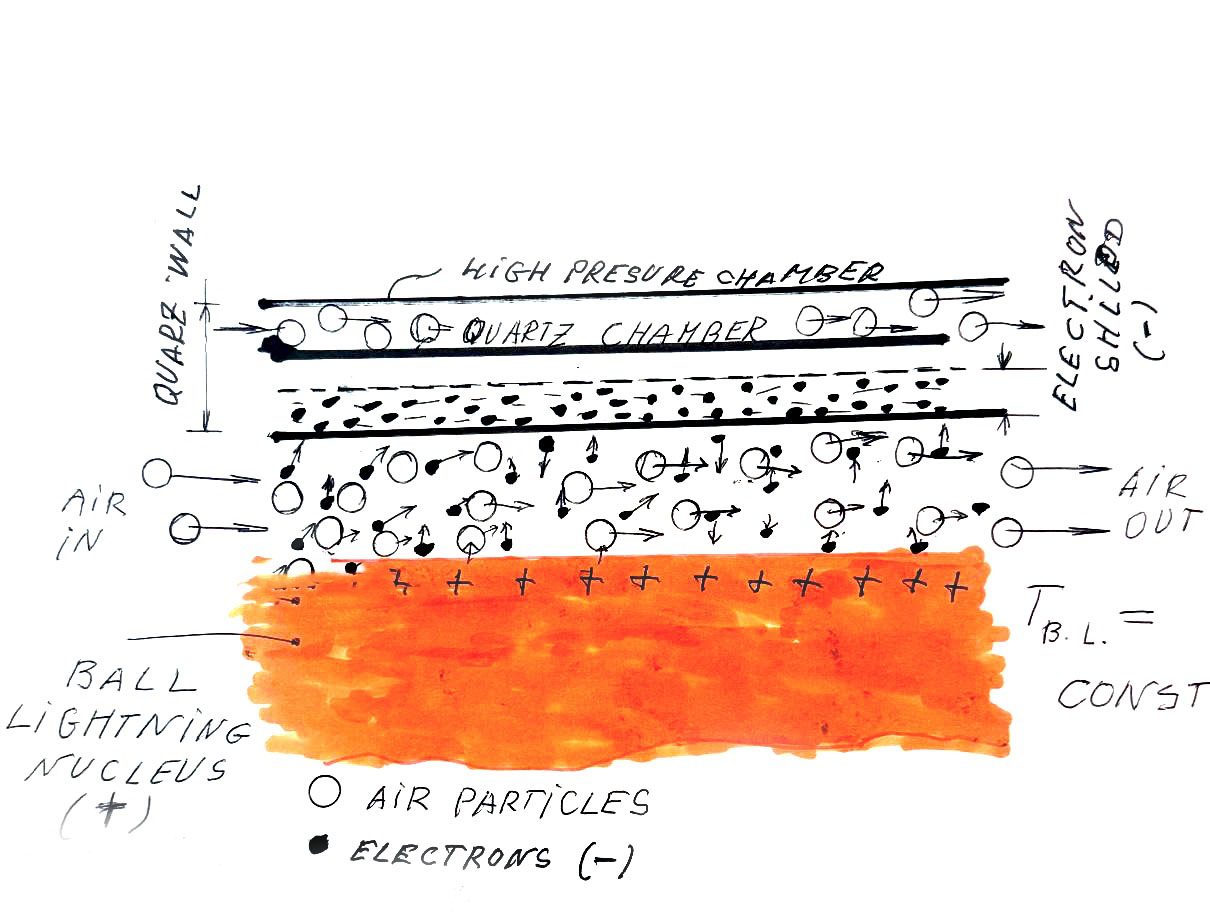 HIGH PRESURE CHAMBER
QUARZ WALL
QUARTZ CHAMBER
ELECTRON
SHILED
(-)
AIR
IN
AIR
OUT
+ + + + + + + + + + +
T B.L. =
CONST
BALL
LIGHTNING
NUCLEUS
(+)
AIR PARTICLES
ELECTRONS (-)